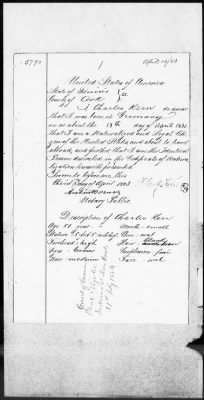 5790
April 10/83
1
United States of America
State of Illinois } ss
County of Cook
I Charles Kern do swear
that I was born in Germany
on or about the 19th day of April 1831
that I am a Naturalized and loyal Citi-
zen of the United States and about to travel
abroad, and further that I am the Identical
Person described in the Certificate of Natura-
lization herewith presented
Sworn to before me this
third day of April 1883
Notary Public
Description of Charles Kern
Age 51 years
Mouth small
Stature 5 feet
Chin oval
Forehead high
Hair
Eyes brown
Complexion fair
Nose medium
Face oval